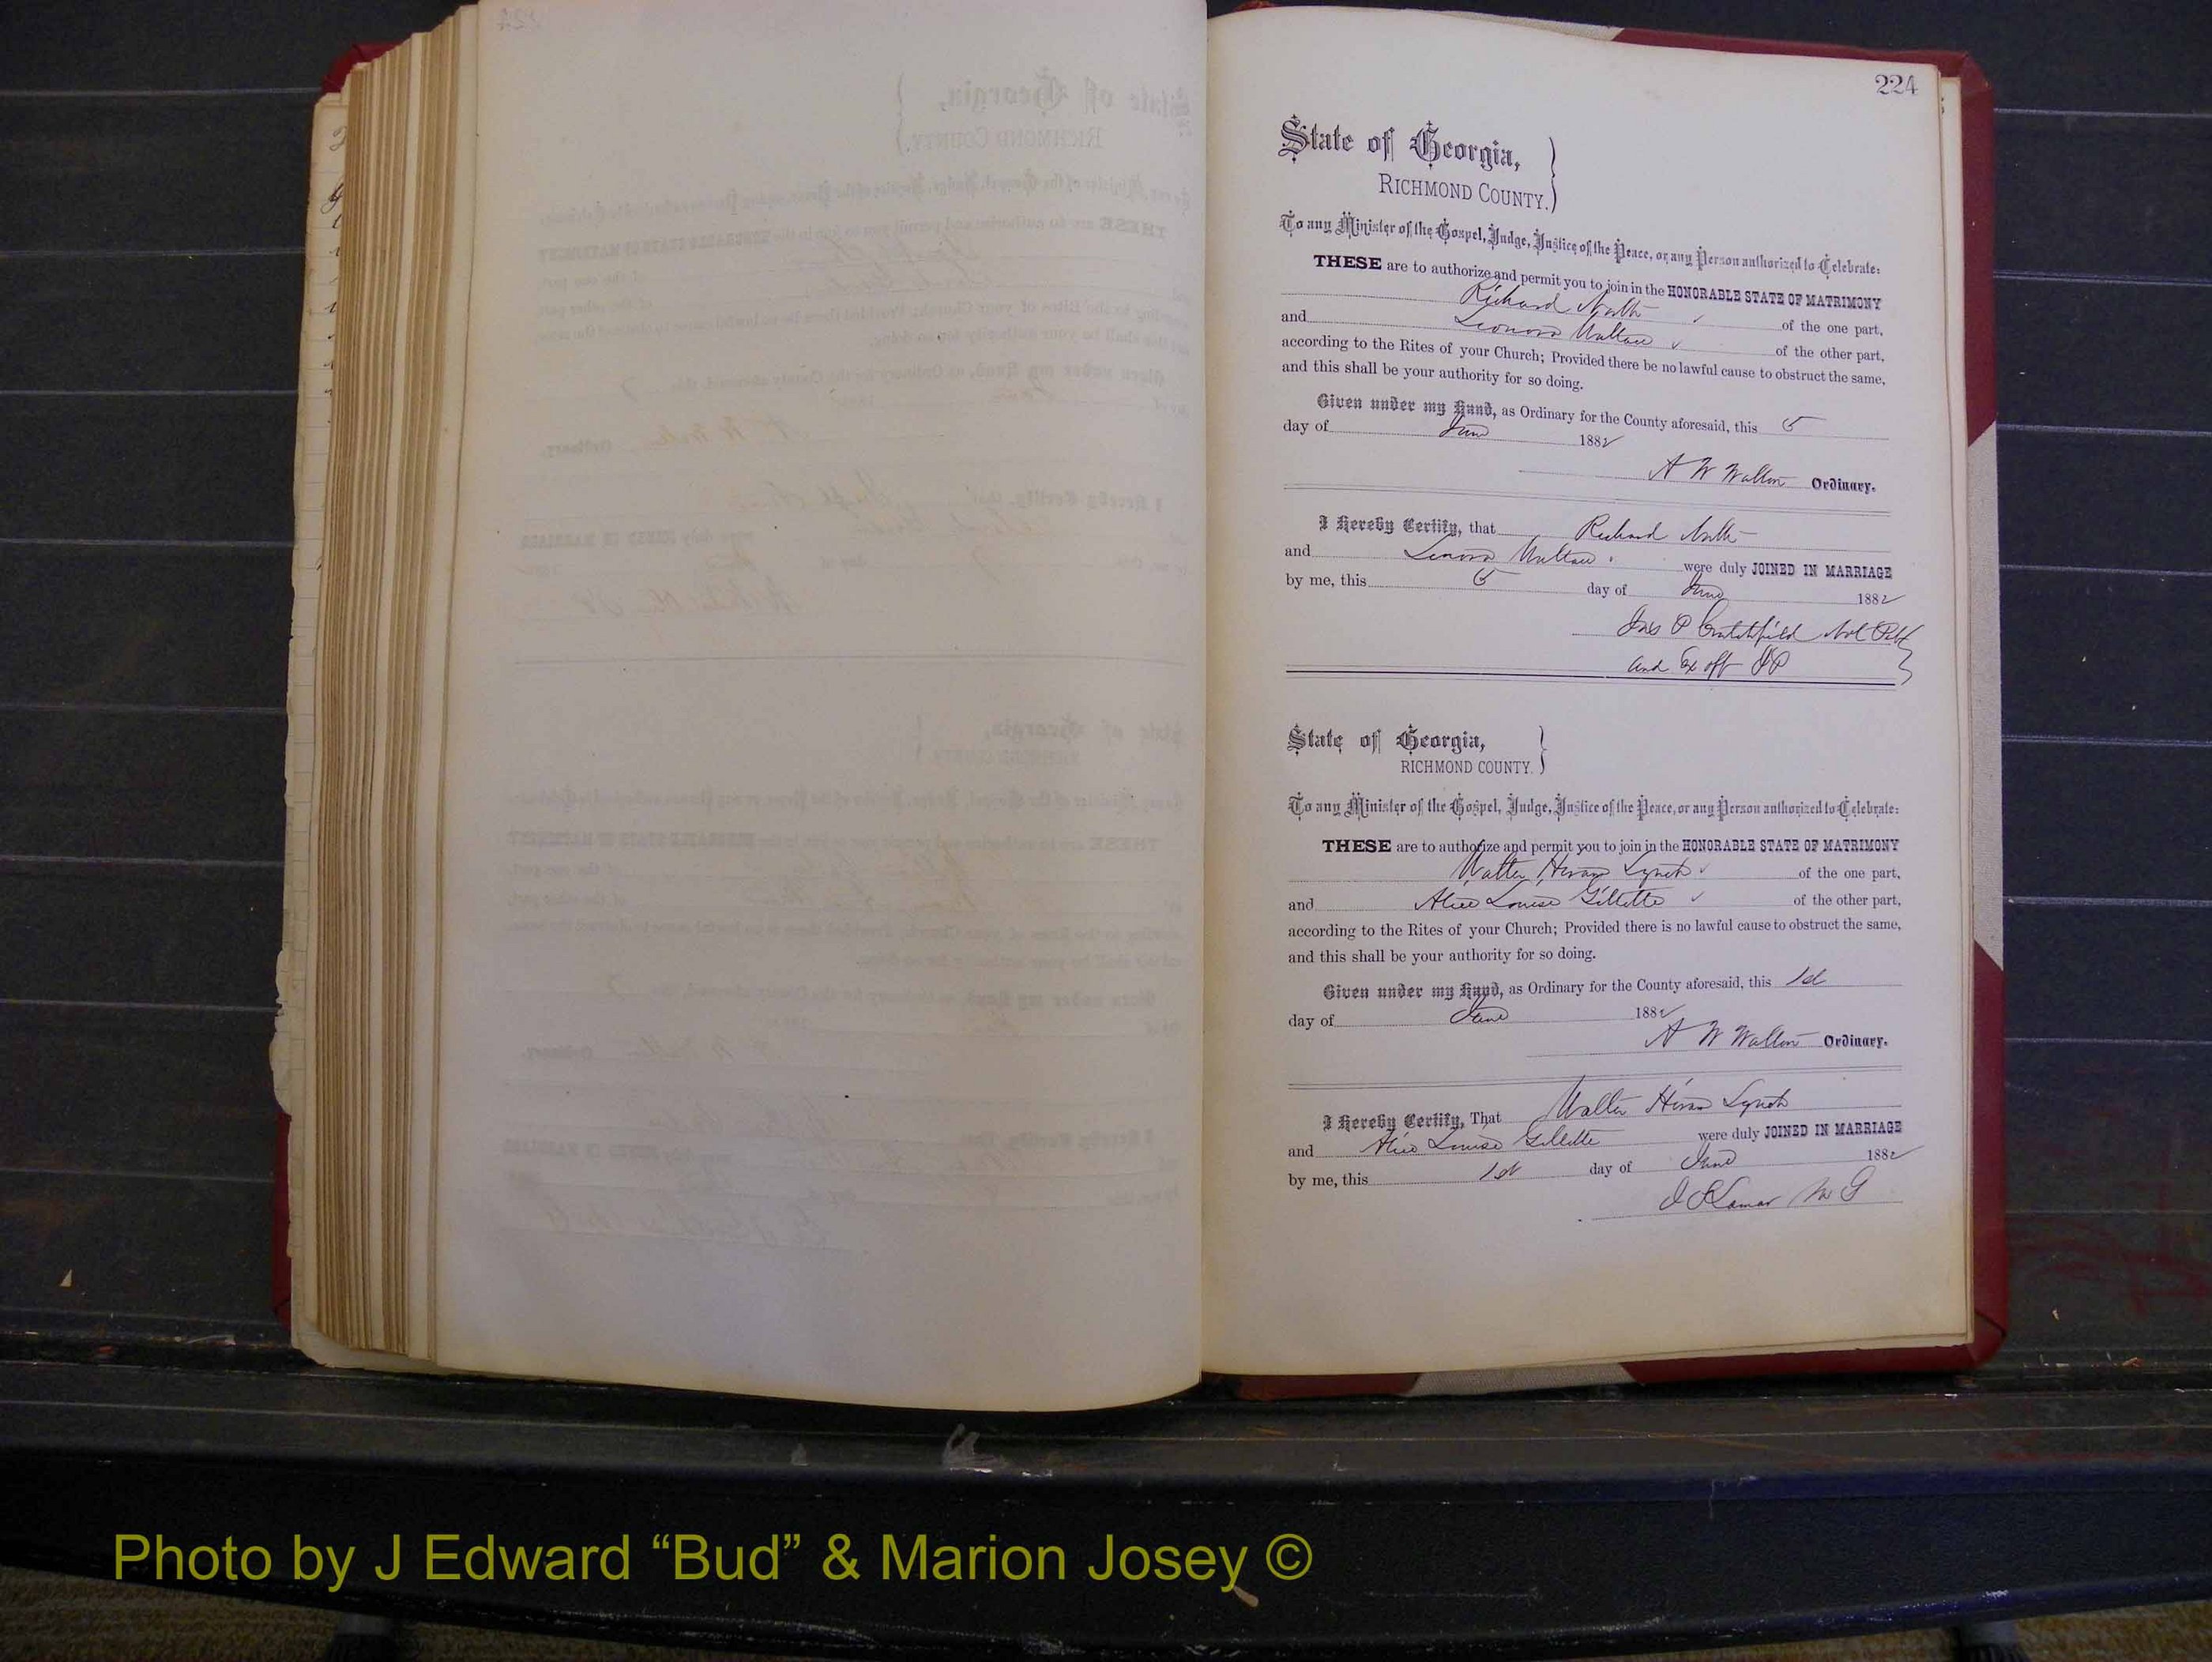 224
State of Georgia,
RICHMOND COUNTY.
To any Minister of the Gospel, Judge, Justice of the Peace, or any Person authorized to Celebrate:
THESE are to authorize and permit you to join in the HONORABLE STATE OF MATRIMONY
Richard of the one part,
and Leonora Wallace of the other part,
according to the Rites of your Church; Provided there be no lawful cause to obstruct the same,
and this shall be your authority for so doing.
Given under my Hand, as Ordinary for the County aforesaid, this 5
day of June 1882
A W Walton Ordinary.
I Hereby Certify, that Richard
and Lenora Wallace were duly JOINED IN MARRIAGE
by me, this 5 day of June 1882
P Crutchfield Not Pub
and Ex off JP
State of Georgia,
RICHMOND COUNTY.
To any Minister of the Gospel, Judge, Justice of the Peace, or any Person authorized to Celebrate:
THESE are to authorize and permit you to join in the HONORABLE STATE OF MATRIMONY
Walter Hiram Lynch of the one part,
and Alice Louise Gillette of the other part,
according to the Rites of your Church; Provided there is no lawful cause to obstruct the same,
and this shall be your authority for so doing.
Given under my Hand, as Ordinary for the County aforesaid, this 1st
day of June 1882
A W Walton Ordinary.
I Hereby Certify, That Walter Hiram Lynch
and Alice Louise Gillette were duly JOINED IN MARRIAGE
by me, this 1st day of June 1882
J S Lamar M G
Photo by J Edward “Bud” & Marion Josey ©